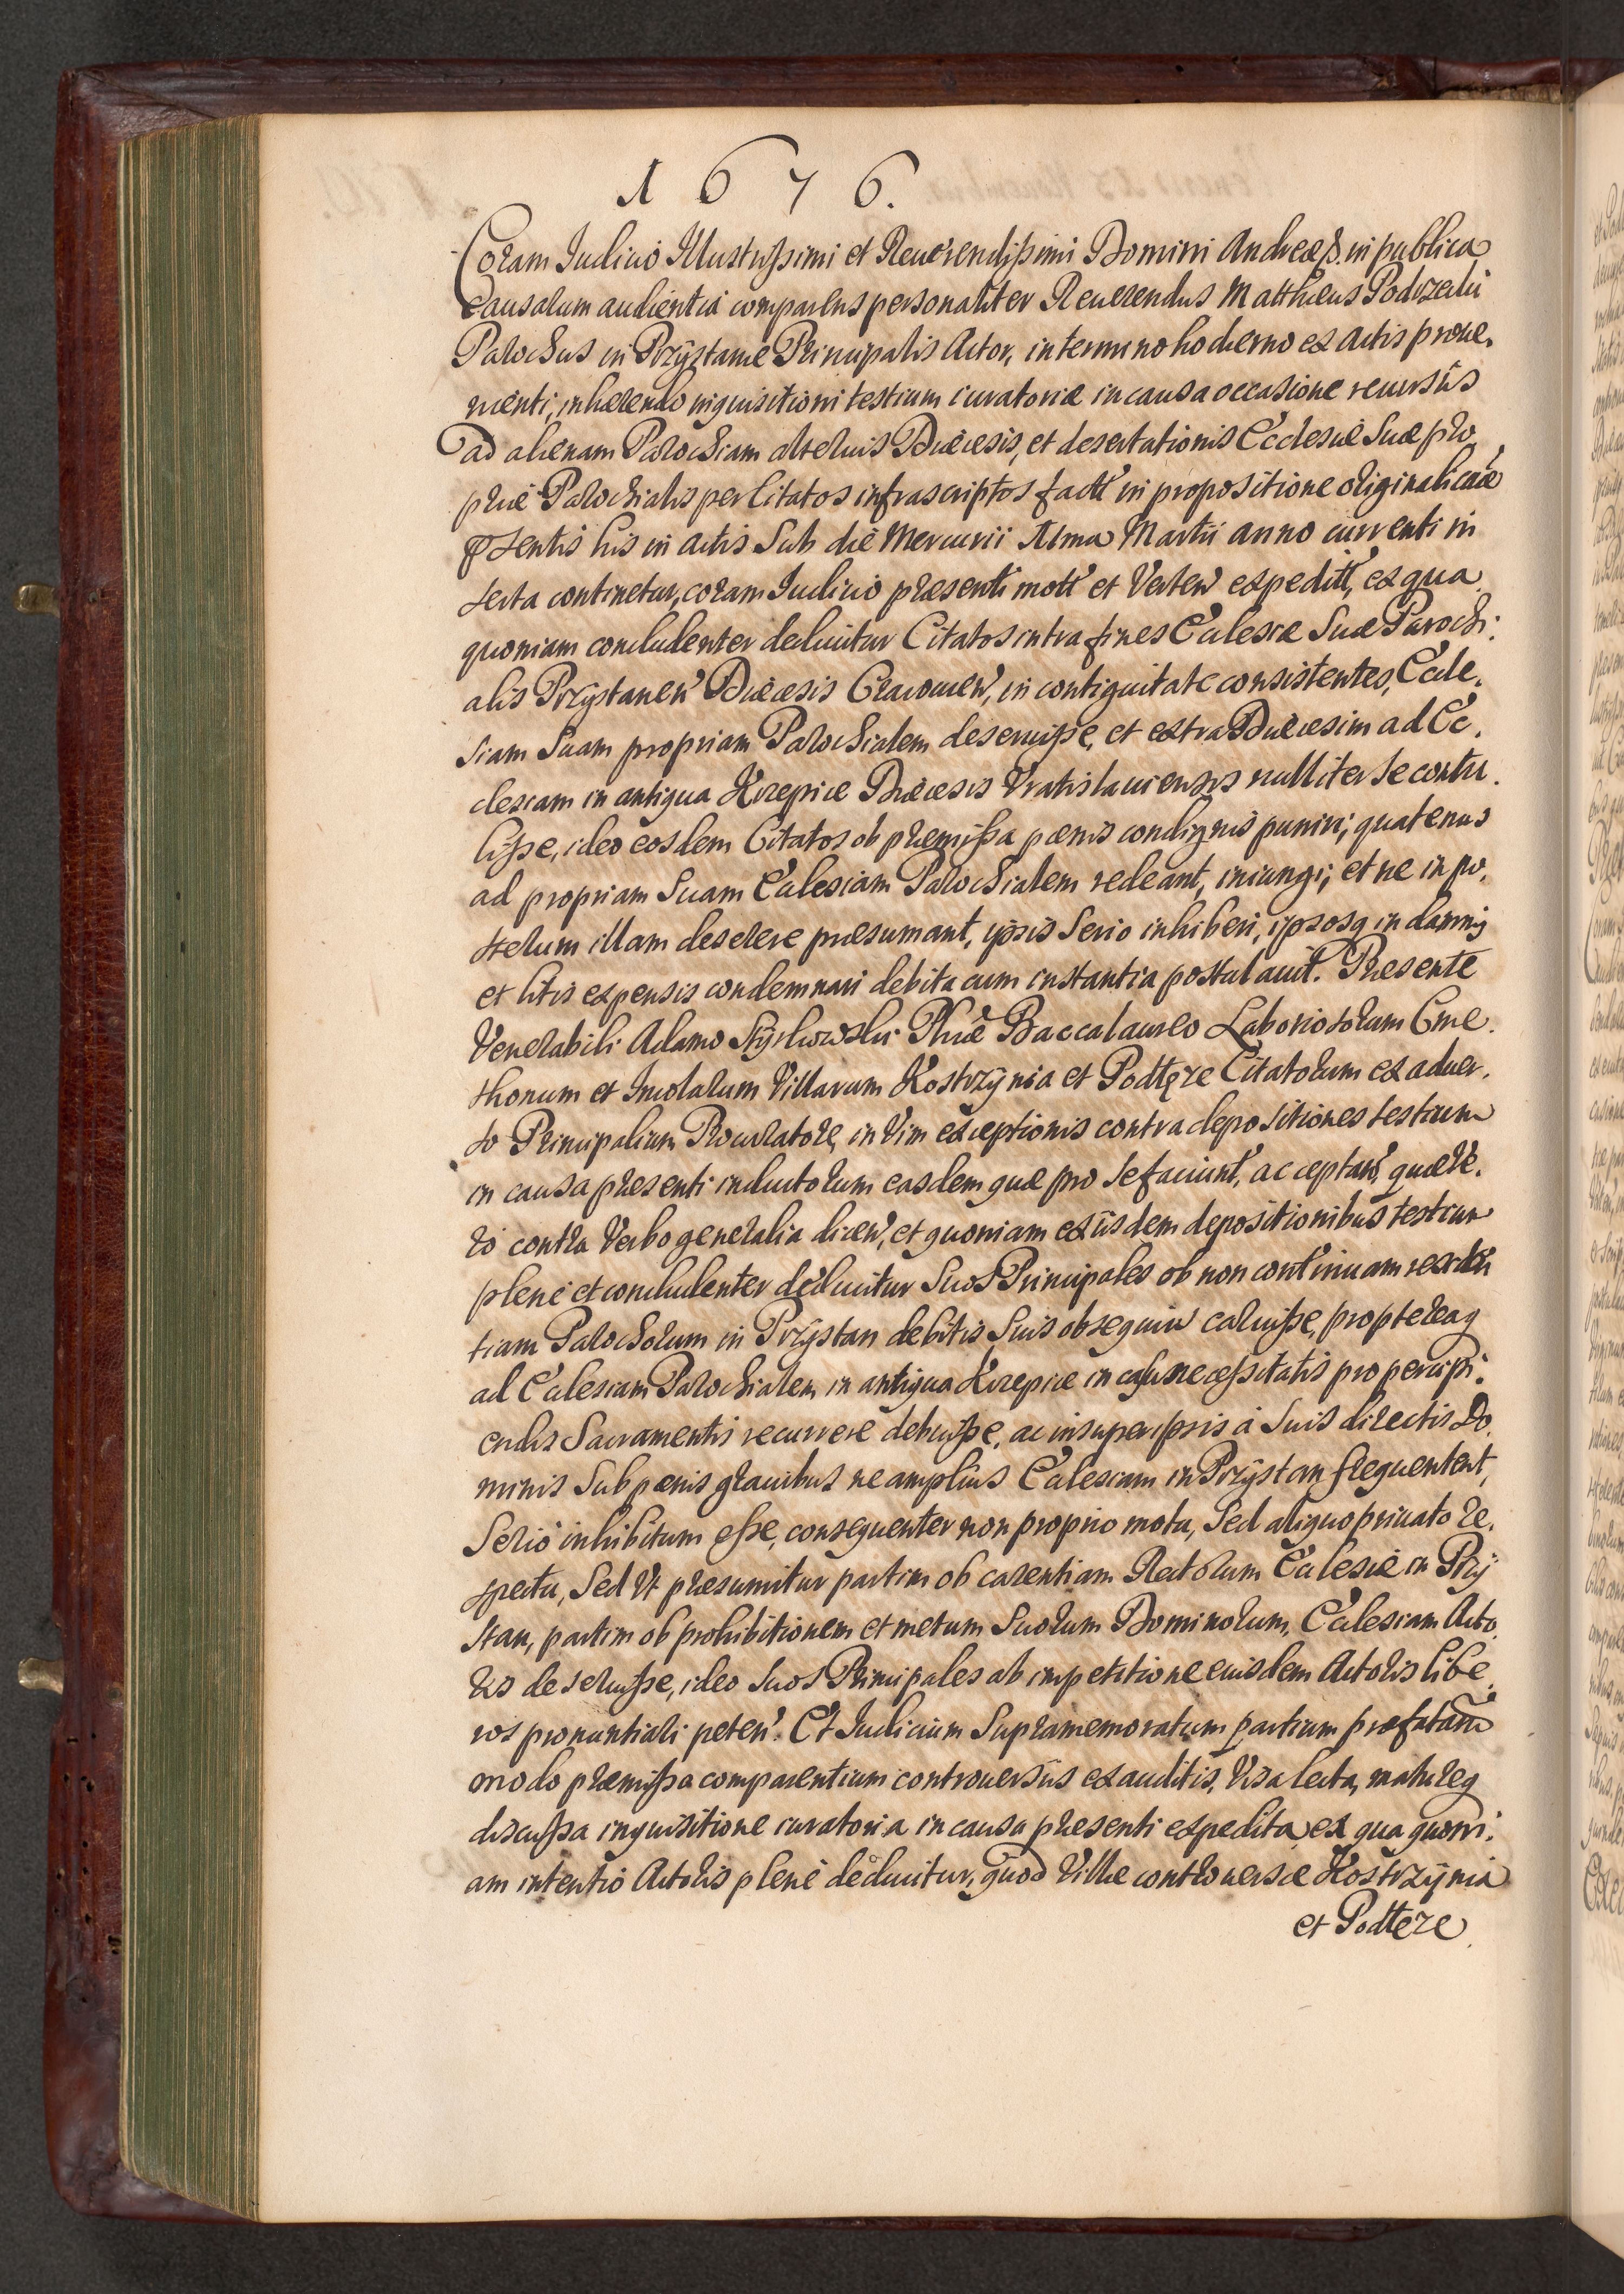 1676.
Coram Iudicio Illustrissimi et Reuerendissimi Domini Andreæ &. in publica
Causarum audientia comparens personaliter Reuerendus Matthæus Podrzecki
Parochus in Przÿstanie Principalis Actor, in termino hodierno ex Actis proue,
nienti, inhærendo inquisitioni testium curatoriæ in causa occasione recursûs
ad alienam Parochiam alterius Diæcesis, et desertationis Ecclesiæ Suæ pro
priæ Parochialis per Citatos infrascriptos factt' in propositione originali
ꝓsentis lis in Actis Sub die Mercurii Martii anno currenti in
serta continetur, coram Iudicio præsenti mott' et Verten' expeditt', ex qua
quoniam concludenter deducitur Citatos intra fines Ecclesiæ Suæ Parochi:
alis Przÿstanen' Diæcesis Cracouien', in contiguitate consistentes, Eccle,
siam Suam propriam Parochialem deseruisse, et extra Diæcesim ad Ec,
clesiam in antiqua Krzepice Diæcesis Vratislauiensis nulliter se contu,
lisse, ideo eosdem Citatos ob præmissa pænis condignis puniri, quatenus
ad propriam Suam Ecclesiam Parochialem redeant, iniungi, et ne in po,
sterum illam deserere præsumant, ipsis Serio inhiberi, ipsosq in damnis
et litis expensis condemnari debita cum instantia postulauit. Præsente
Venerabili Adamo Phiæ Baccalaureo Laboriosorum Cme,
thonum et Incolarum Villarum Kostrzÿnia et Podłęże Citatorum ex aduer,
so Principalium Procuratore, in Vim exceptionis contra depositiones testium
in causa præsenti inductorum easdem quæ pro se faciunt, acceptan', quæ ve,
rò contra Verbo generalia dicen', et quoniam ex iisdem depositionibus testium
plenè et concludenter dèducitur Suos Principales ob non continuam residen
tiam Parochorum in Przÿstan debitis Suis obsequiis caruisse, proptereaq
ad Ecclesiam Parochialem in antiqua Krzepice in casu necessitatis pro percipi:
endis Sacramentis recurrere debuisse, ac insuper ipsis à Suis directis Do,
minis Sub pænis grauibus ne amplius Ecclesiam in Przÿstan frequentent,
Seriò inhibitum esse, consequenter non proprio motu, Sed aliquo priuato re,
spectu, Sed Vt præsumitur partim ob carentiam Rectorum Ecclesiæ in Przÿ
stan, partim ob prohibitionem et metum Suorum Dominorum, Ecclesiam Acto,
ris deseruisse, ideo Suos Principales ab impetitione eiusdem Actoris libe,
ros pronuntiari peten'. Et Iudicium Supramemoratum partium præfatarum
modo præmisso comparentium controuersiis exauditis, Visa lecta, matureq
discussa inquisitione curatoria in causa præsenti expedita, ex qua quoni,
am intentio Actoris plenè dèducitur, quod Villæ controuersæ Kostrzÿnia
et Podłęże